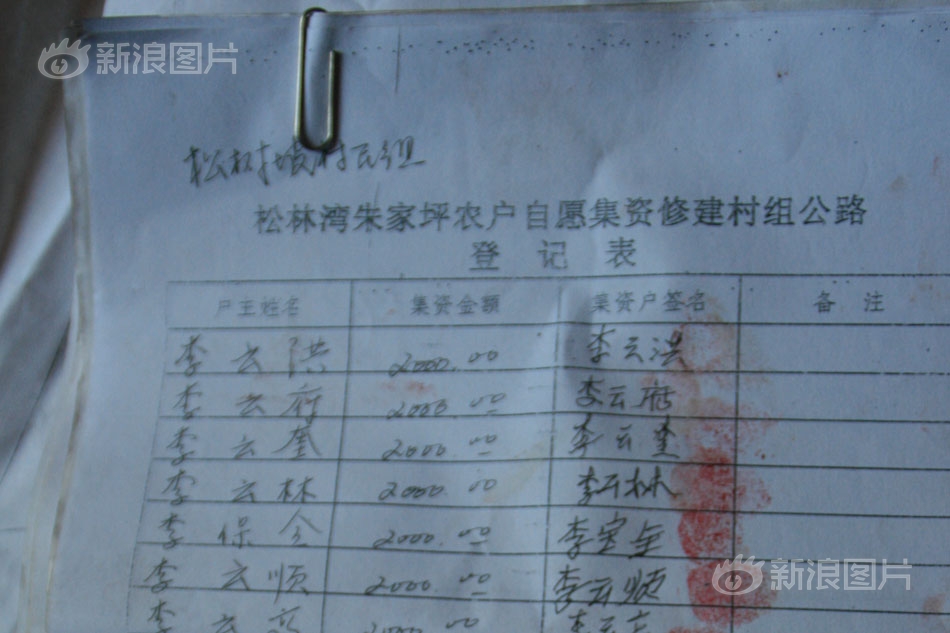 新浪图片
松林坡村民组
松林湾朱家坪农户自愿集资修建村组公路
登 记 表
户主姓名 集资金额 集资户签名 备 注
李云洪 2000.00 李云洪
李云府 2000.00 李云府
李云奎 2000.00 李云奎
李云林 2000.00 李云林
李保全 2000.00 李宝全
李云顺 2000.00 李云顺
李云 2000.00 李云
新浪图片